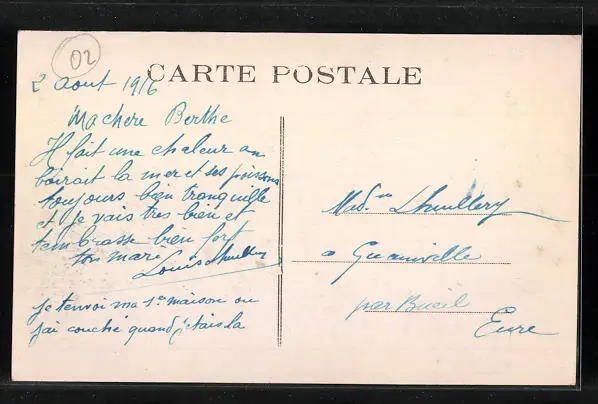 02
CARTE POSTALE
2 aout 1916
Ma chere Berthe
Il fait une chaleur an
boirait la mer et ses poissons
toujours bien tranquille
et je vais tres bien et
tembrasse bien fort
ton mari Louis Lhuillery
je tenvoi ma 1re maison ou
jai couché quand jetais la
Mad.me Lhuillery
a Guainville
par Bueil
Eure